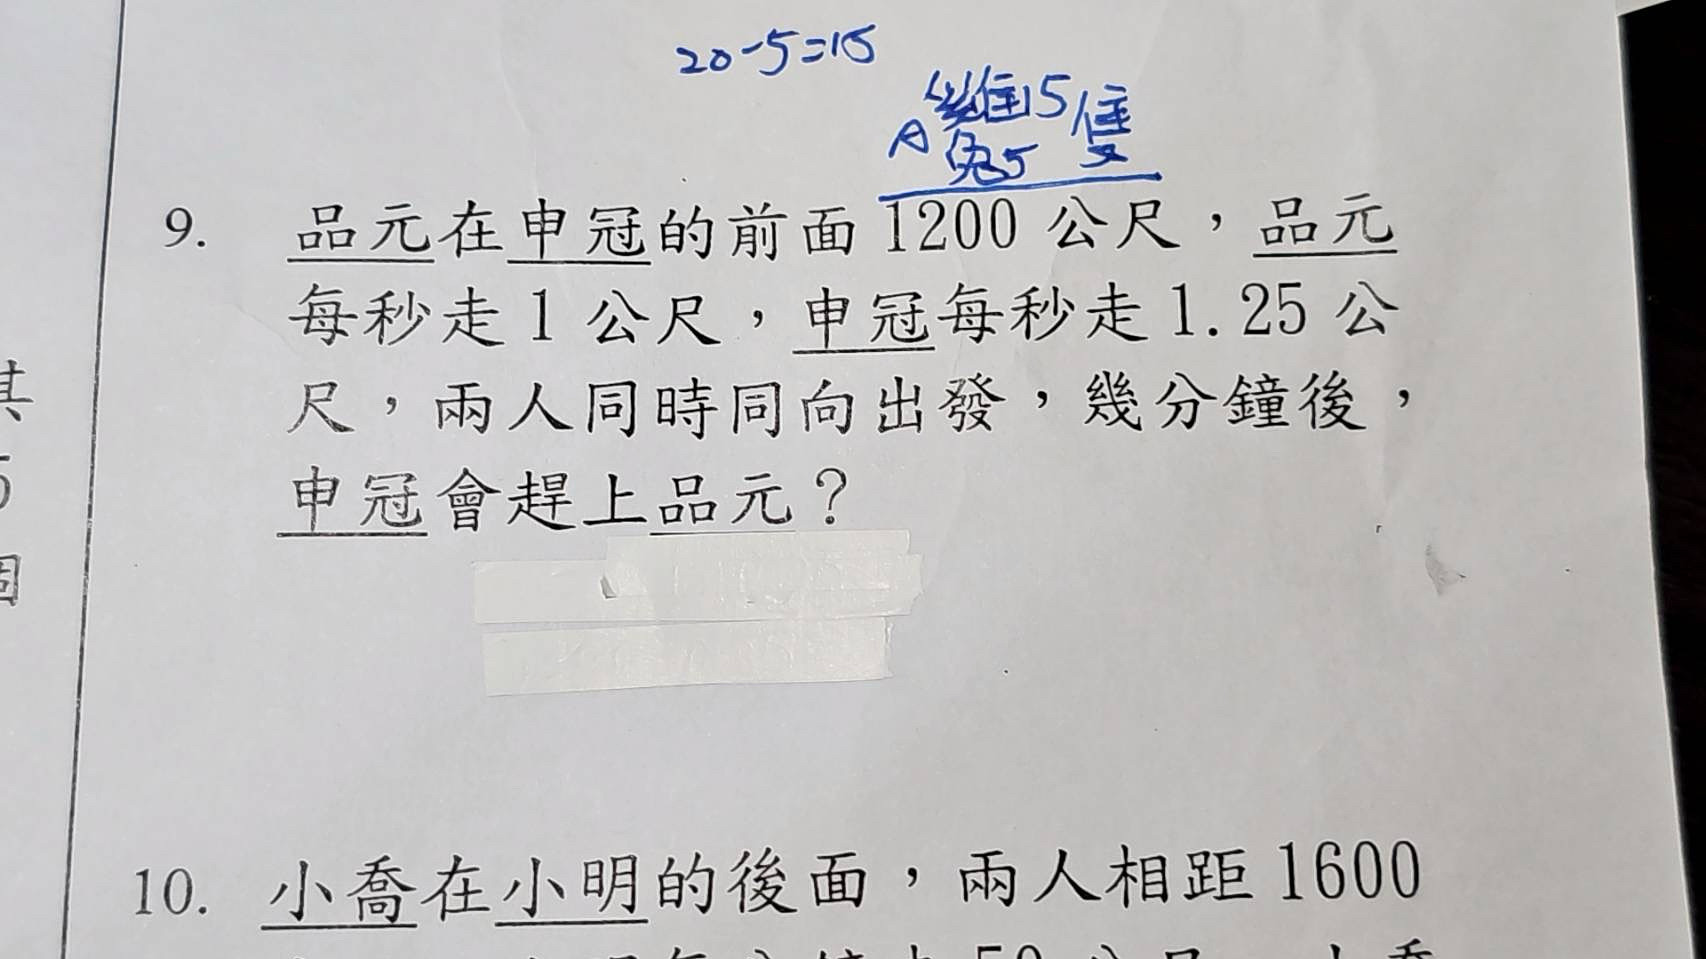 20-5=15
雞15隻
A 兔5
9. 品元在申冠的前面1200公尺，品元
每秒走1公尺，申冠每秒走1.25公
尺，兩人同時同向出發，幾分鐘後，
其
申冠會趕上品元？
5
個
10. 小喬在小明的後面，兩人相距1600